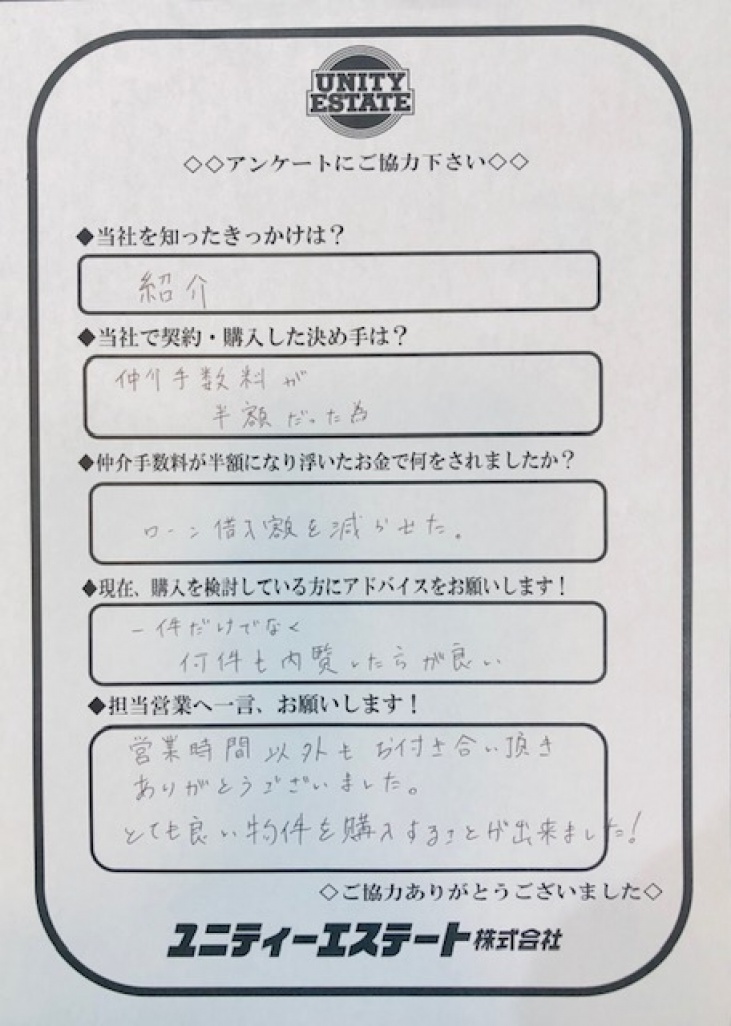 UNITY
ESTATE
◇◇アンケートにご協力下さい◇◇
◆当社を知ったきっかけは？
紹介
◆当社で契約・購入した決め手は？
仲介手数料が
半額だった為
◆仲介手数料が半額になり浮いたお金で何をされましたか？
ローン借入額を減らせた。
◆現在、購入を検討している方にアドバイスをお願いします！
一件だけでなく
何件も内覧したらが良い
◆担当営業へ一言、お願いします！
営業時間以外もお付き合い頂き
ありがとうございました。
とても良い物件を購入することが出来ました！
◇ご協力ありがとうございました◇
ユニティーエステート株式会社